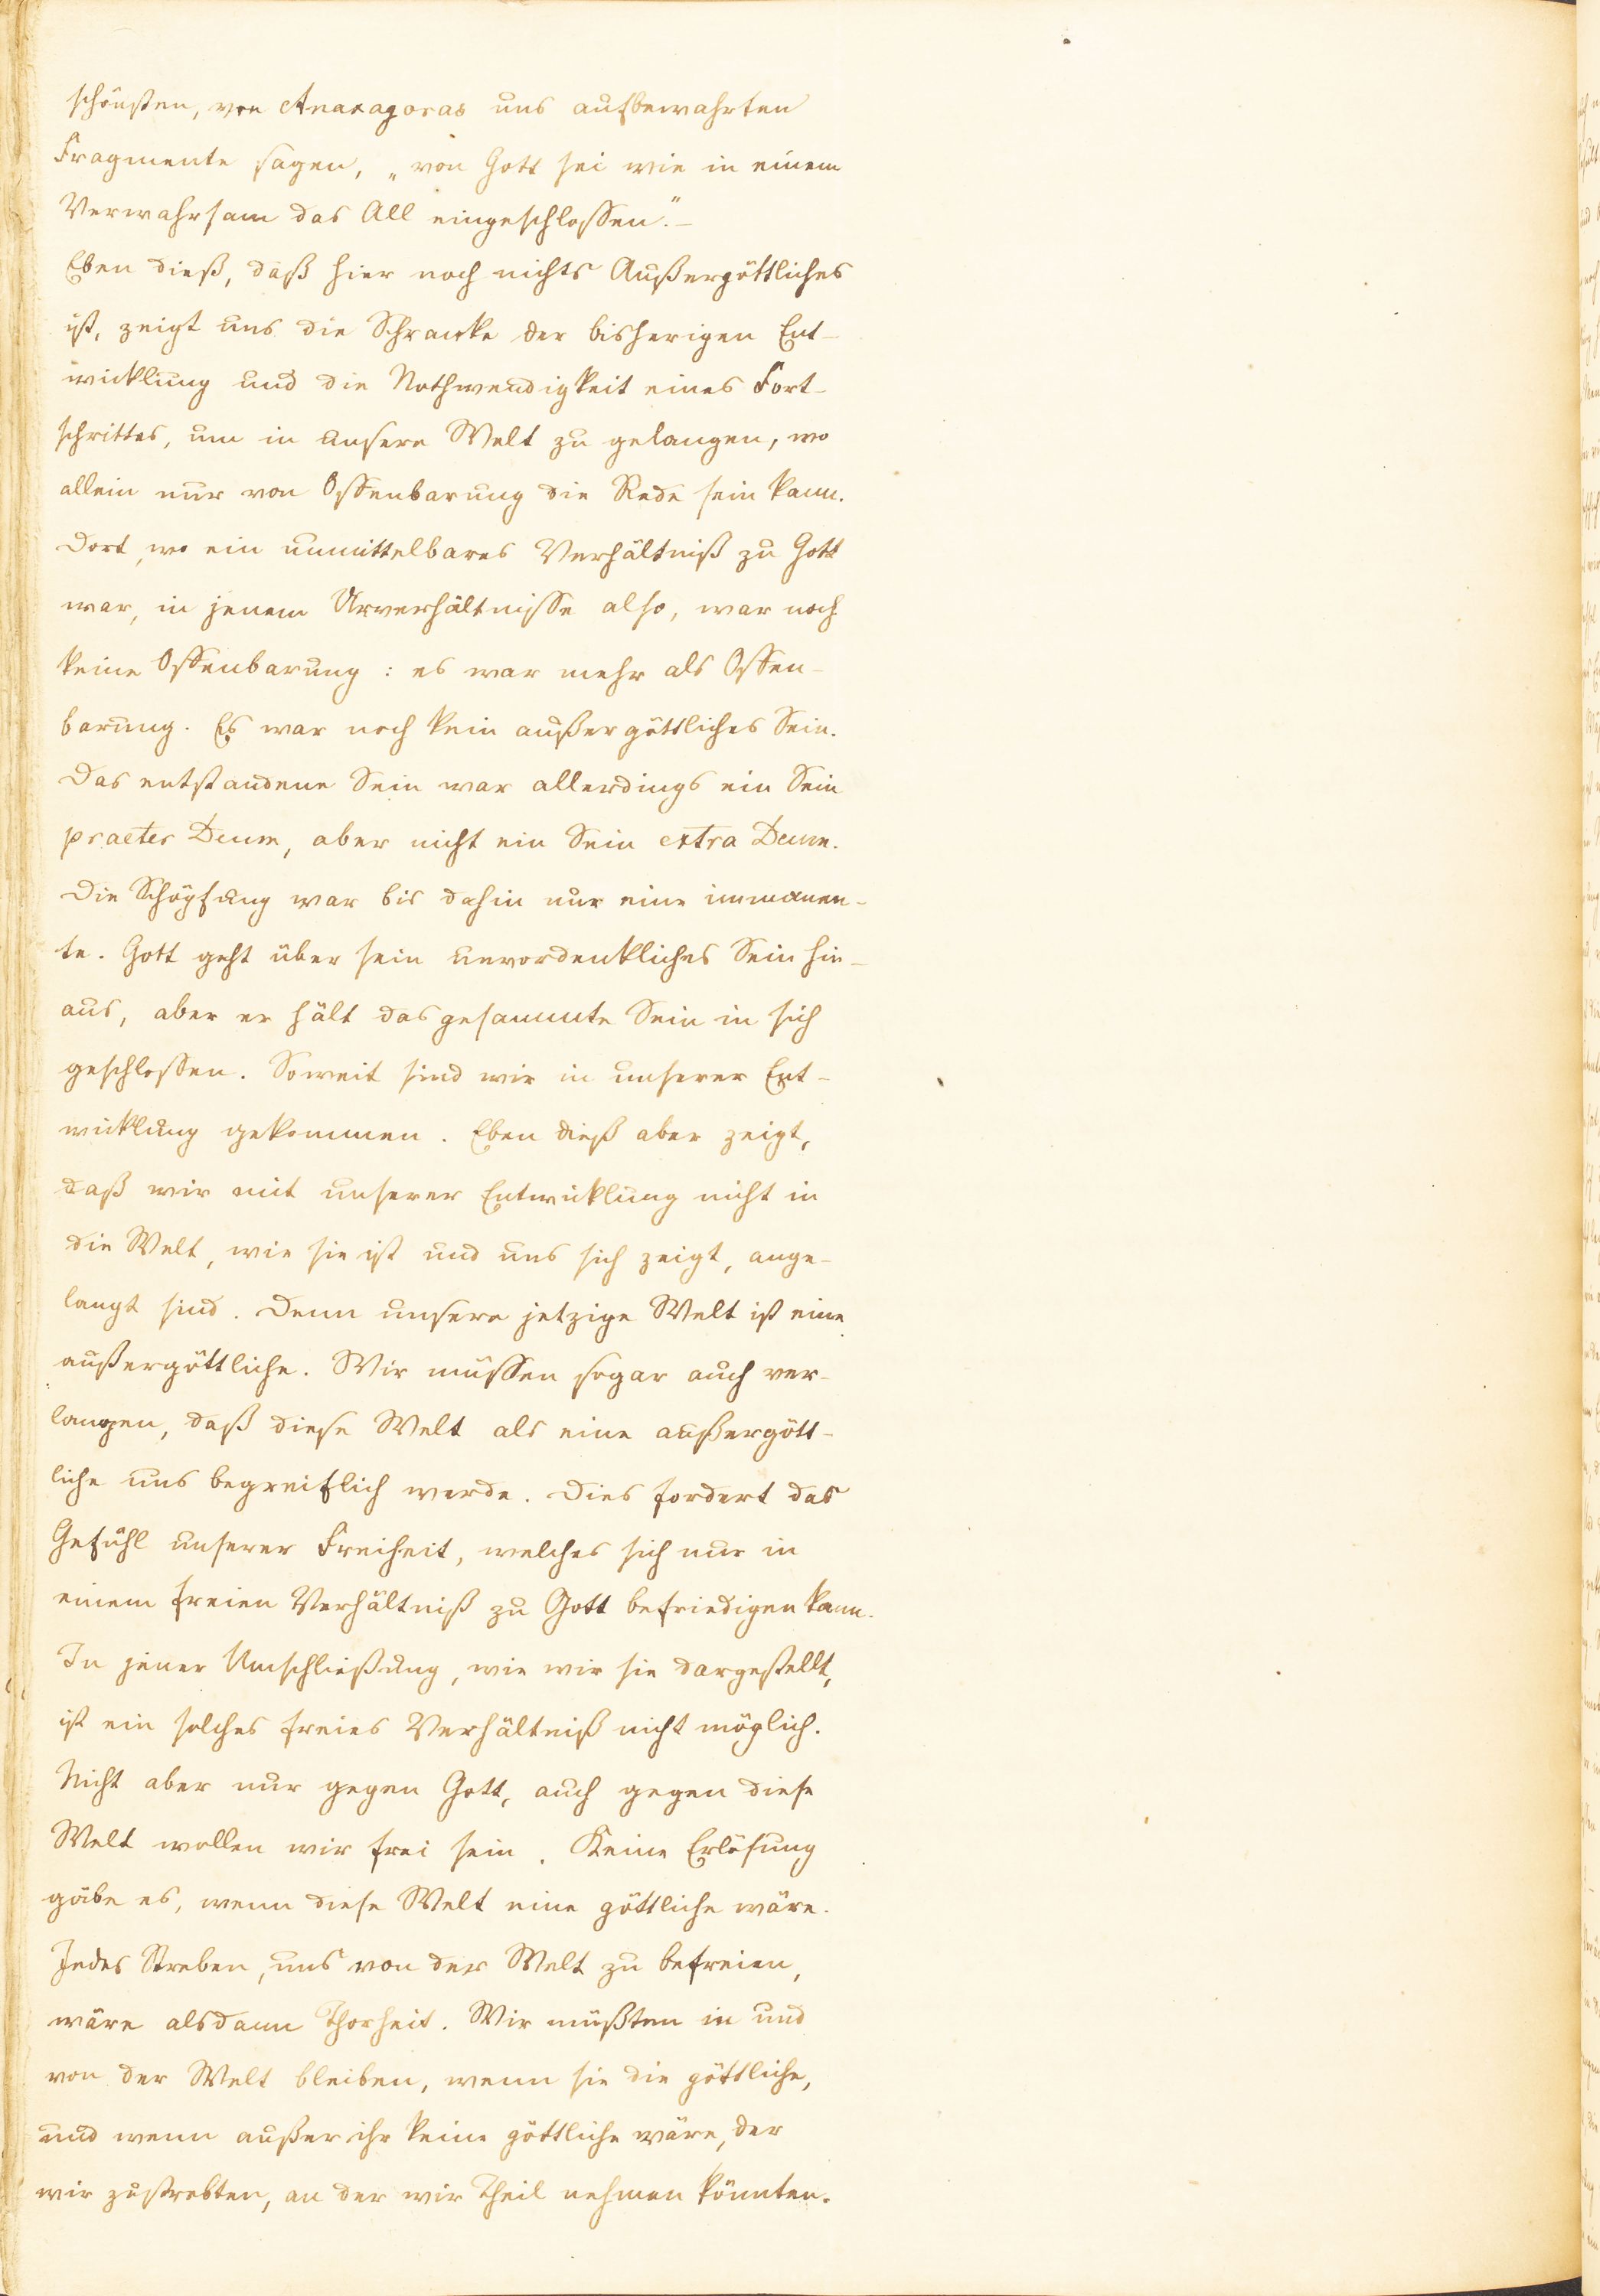 schönsten, von Anaxagoras uns aufbewahrten
Fragmente sagen, „von Gott sei wie in einem
Verwahrsam das All eingeschlossen." –
Eben dieß, daß hier noch nichts Außergöttliches
ist, zeigt uns die Schranke der bisherigen Ent-
wicklung und die Nothwendigkeit eines Fort-
schrittes, um in unsere Welt zu gelangen, wo
allein nur von Offenbarung die Rede sein kann.
Dort, wo ein unmittelbares Verhältniß zu Gott
war, in jenem Urverhältnisse also, war noch
keine Offenbarung : es war mehr als Offen-
barung. Es war noch kein außergöttliches Sein.
Das entstandene Sein war allerdings ein Sein
praeter Deum, aber nicht ein Sein extra Deum.
Die Schöpfung war bis dahin nur eine immanen-
te. Gott geht über sein unvordenkliches Sein hin-
aus, aber er hält das gesammte Sein in sich
geschlossen. Soweit sind wir in unserer Ent-
wicklung gekommen. Eben dieß aber zeigt,
daß wir mit unserer Entwicklung nicht in
die Welt, wie sie ist und uns sich zeigt, ange-
langt sind. Denn unsere jetzige Welt ist eine
außergöttliche. Wir müssen sogar auch ver-
langen, daß diese Welt als eine außergött-
liche uns begreiflich werde. Dies fordert das
Gefühl unserer Freiheit, welches sich nur in
einem freien Verhältniß zu Gott befriedigen kann.
In jener Umschließung, wie wir sie dargestellt,
ist ein solches freies Verhältniß nicht möglich.
Nicht aber nur gegen Gott, auch gegen diese
Welt wollen wir frei sein. Keine Erlösung
gäbe es, wenn diese Welt eine göttliche wäre.
Jedes Streben, uns von der Welt zu befreien,
wäre alsdann Thorheit. Wir müßten in und
von der Welt bleiben, wenn sie die göttliche,
und wenn außer ihr keine göttliche wäre, der
wir zustrebten, an der wir Theil nehmen könnten.